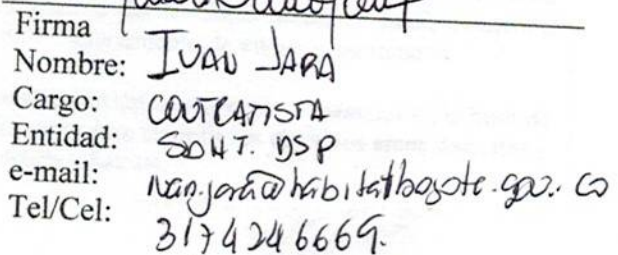 Firma
Nombre: IVAN JARA
Cargo: CONTRATISTA
Entidad: SDHT. DSP
e-mail: ivan.jara@habitatbogota.gov.co
Tel/Cel: 3174246669.